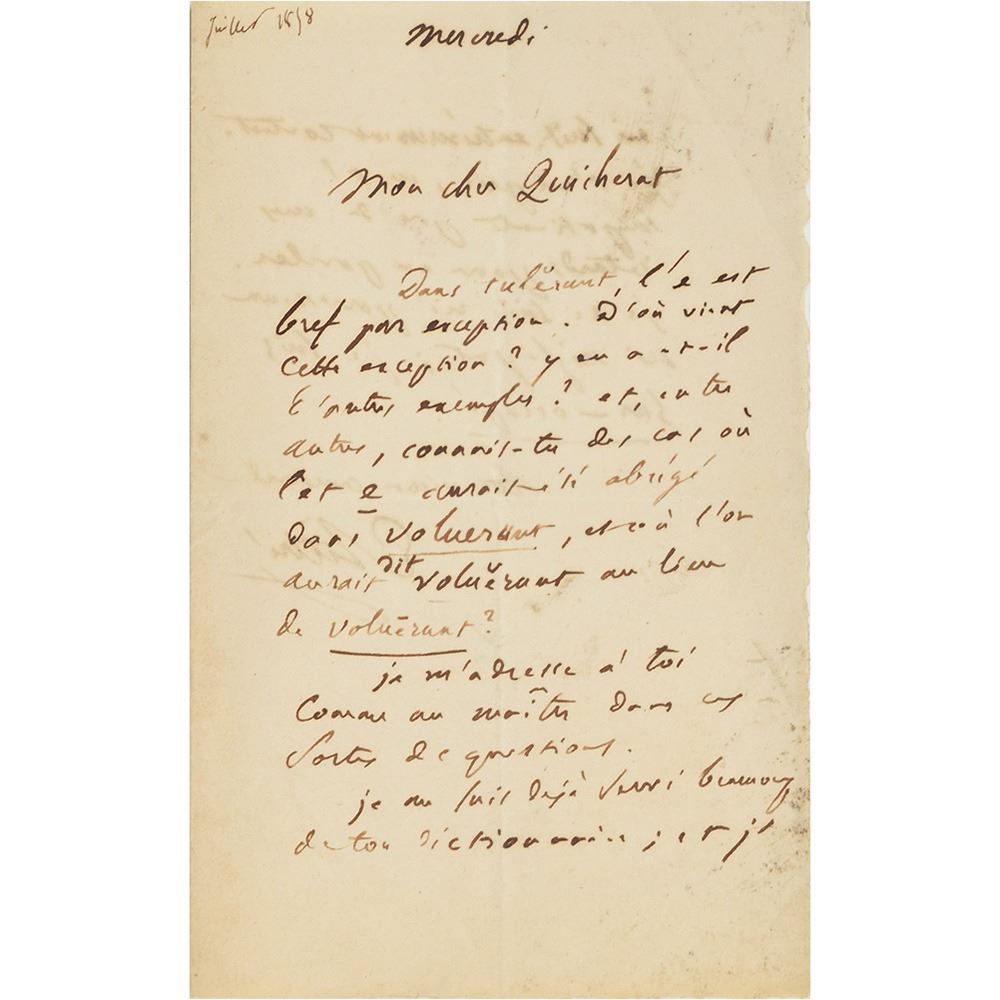 Juillet 1858
Mercredi
Mon cher Quicherat
Dans tulĕrunt, l'e est
bref par exception. D'où vient
cette exception ? y en a-t-il
d'autres exemples ? et, entre
autres, connais-tu des cas où
cet e aurait été abrégé
dans voluerunt, et où l'on
aurait dit voluĕrunt au lieu
de voluērunt ?
je m'adresse à toi
comme au maître dans ces
sortes de questions.
je me suis déjà servi beaucoup
de ton dictionnaire ; et j'